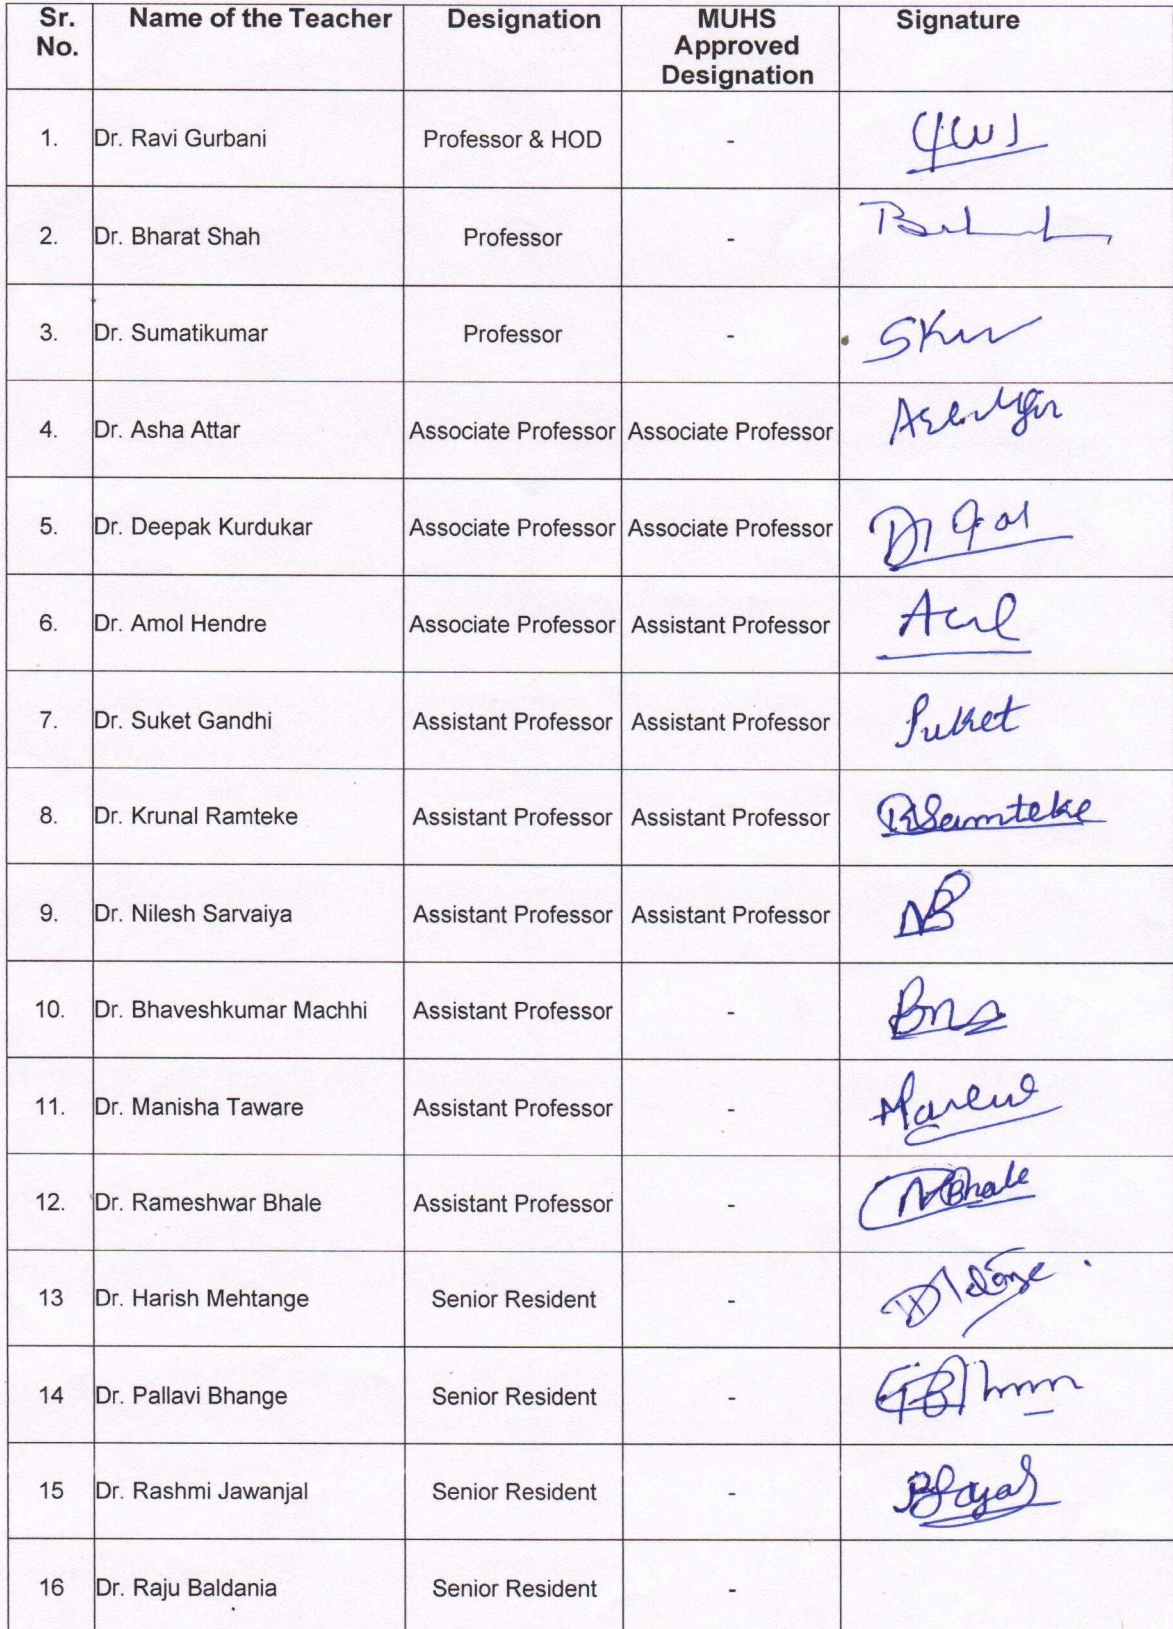 Sr. No. Name of the Teacher Designation MUHS Approved Designation Signature
1. Dr. Ravi Gurbani Professor & HOD -
2. Dr. Bharat Shah Professor -
3. Dr. Sumatikumar Professor -
4. Dr. Asha Attar Associate Professor Associate Professor
5. Dr. Deepak Kurdukar Associate Professor Associate Professor
6. Dr. Amol Hendre Associate Professor Assistant Professor
7. Dr. Suket Gandhi Assistant Professor Assistant Professor Suket
8. Dr. Krunal Ramteke Assistant Professor Assistant Professor
9. Dr. Nilesh Sarvaiya Assistant Professor Assistant Professor
10. Dr. Bhaveshkumar Machhi Assistant Professor -
11. Dr. Manisha Taware Assistant Professor -
12. Dr. Rameshwar Bhale Assistant Professor -
13 Dr. Harish Mehtange Senior Resident -
14 Dr. Pallavi Bhange Senior Resident -
15 Dr. Rashmi Jawanjal Senior Resident -
16 Dr. Raju Baldania Senior Resident -